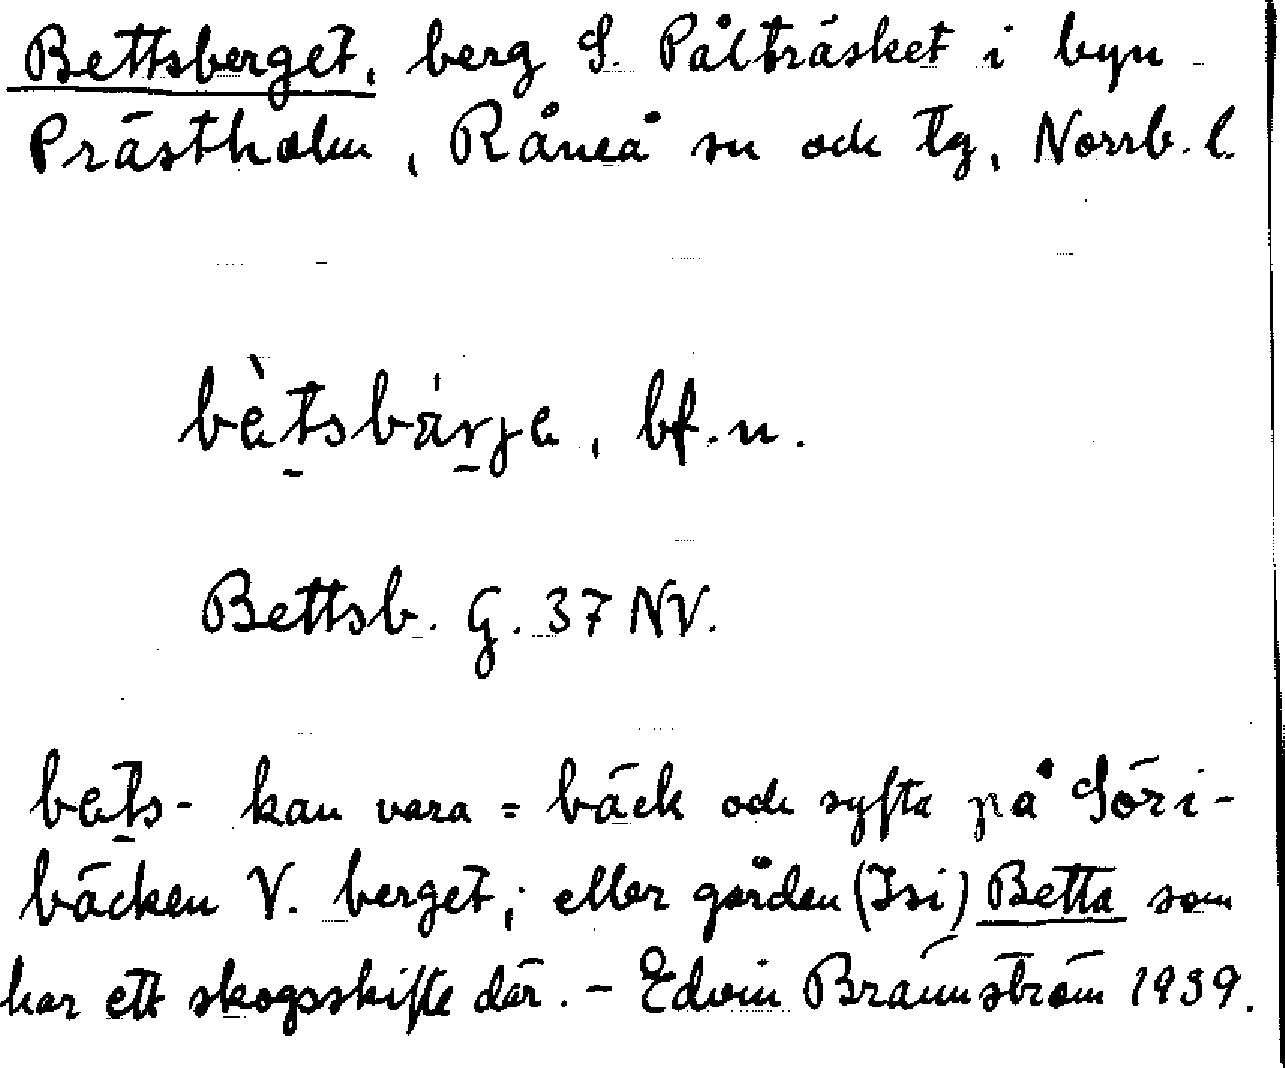 Bettsberget, berg S. Pålträsket i byn
Prästholm, Råneå sn och tg, Norrb. l.
bètsbárje, bf. n.
Bettsb. G. 37 NV.
bets- kan vara = bäck och syfta på Söri-
bäcken V. berget; eller gården (Isi) Betta som
har ett skogsskifte där. - Edvin Brännström 1939.